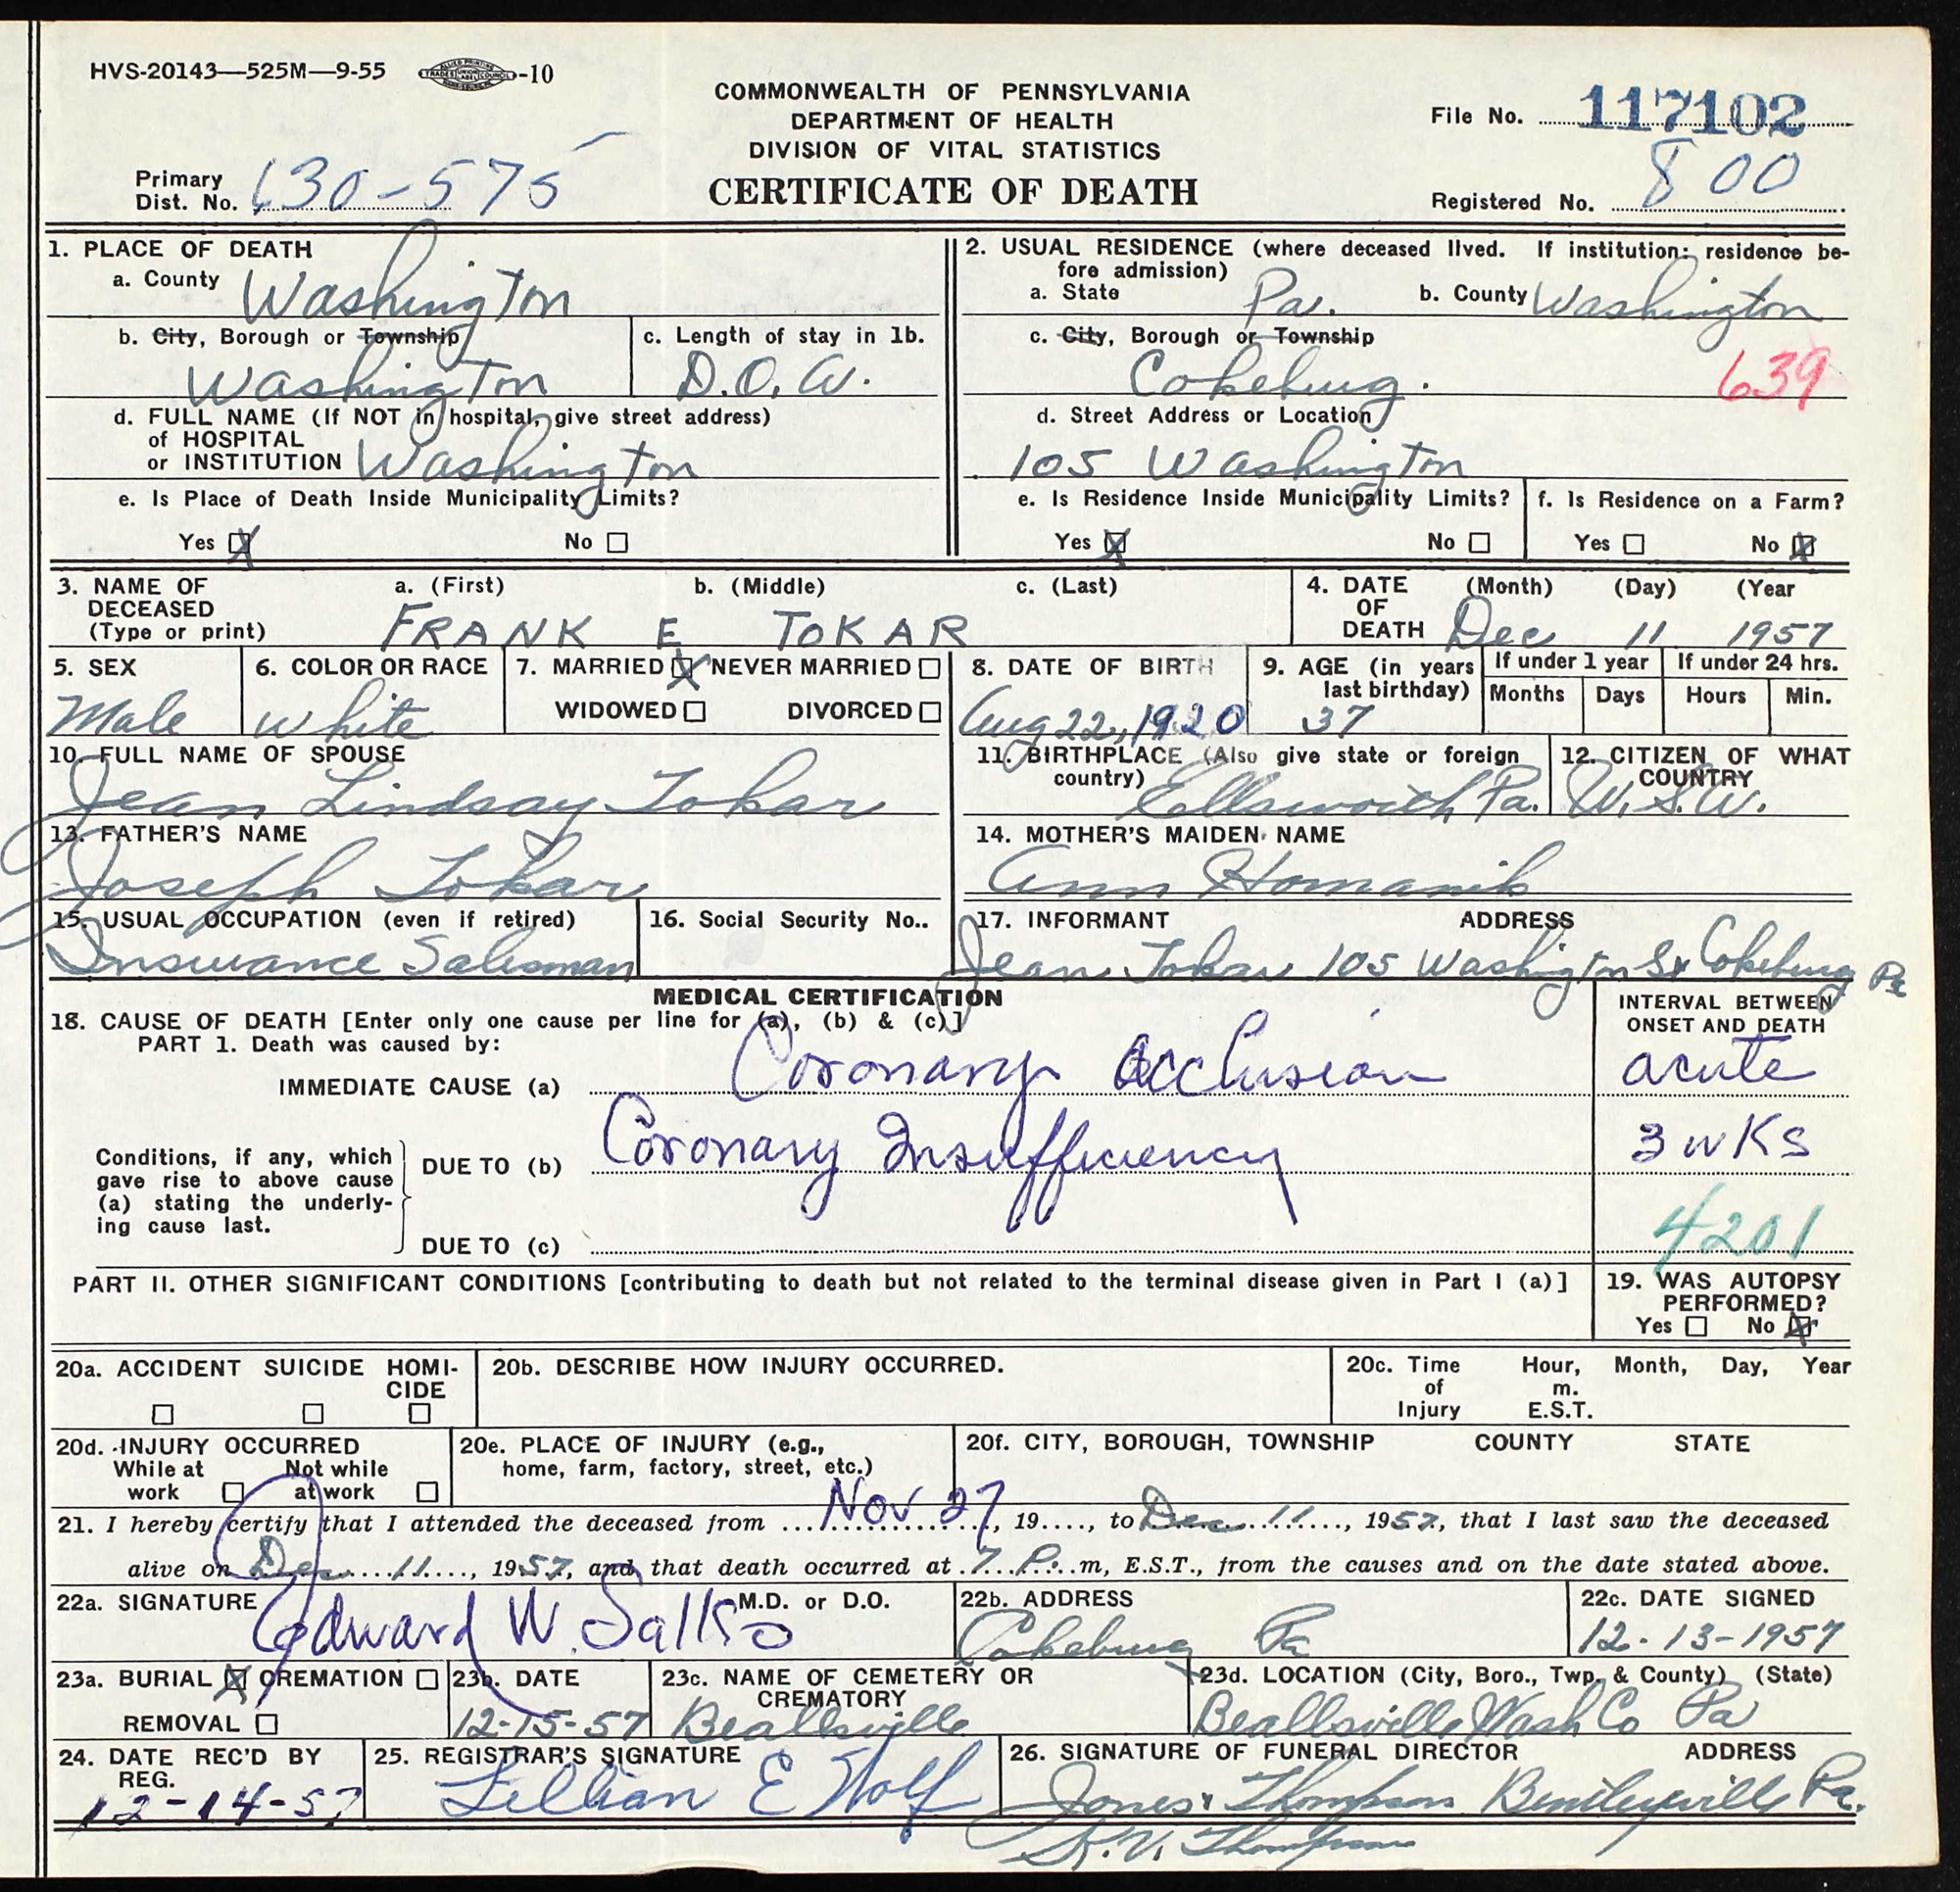 HVS-20143—525M—9-55 -10
COMMONWEALTH OF PENNSYLVANIA
DEPARTMENT OF HEALTH
DIVISION OF VITAL STATISTICS
CERTIFICATE OF DEATH
File No. 117102
Primary Dist. No. 630-575
Registered No. 800
1. PLACE OF DEATH
a. County Washington
b. City, Borough or Township Washington
c. Length of stay in 1b. D.O.A.
d. FULL NAME (If NOT in hospital, give street address)
of HOSPITAL
or INSTITUTION Washington
e. Is Place of Death Inside Municipality Limits?
Yes X No
2. USUAL RESIDENCE (where deceased lived. If institution: residence be-
fore admission)
a. State Pa. b. County Washington
c. City, Borough or Township
Cokeburg. 639
d. Street Address or Location
105 Washington
e. Is Residence Inside Municipality Limits?
Yes X No
f. Is Residence on a Farm?
Yes No X
3. NAME OF DECEASED (Type or print)
a. (First) b. (Middle) c. (Last)
FRANK E TOKAR
4. DATE OF DEATH (Month) (Day) (Year
Dec 11 1957
5. SEX
Male
6. COLOR OR RACE
White
7. MARRIED X NEVER MARRIED
WIDOWED DIVORCED
8. DATE OF BIRTH
Aug 22, 1920
9. AGE (in years last birthday)
37
If under 1 year
Months Days
If under 24 hrs.
Hours Min.
10. FULL NAME OF SPOUSE
Jean Lindsay Tokar
11. BIRTHPLACE (Also give state or foreign
country) Ellsworth Pa.
12. CITIZEN OF WHAT
COUNTRY
U.S.A.
13. FATHER'S NAME
Joseph Tokar
14. MOTHER'S MAIDEN NAME
Ann Homanik
15. USUAL OCCUPATION (even if retired)
Insurance Salesman
16. Social Security No..
17. INFORMANT ADDRESS
Jean Tokar 105 Washington St Cokeburg Pa
MEDICAL CERTIFICATION
18. CAUSE OF DEATH [Enter only one cause per line for (a), (b) & (c)]
PART 1. Death was caused by:
INTERVAL BETWEEN
ONSET AND DEATH
IMMEDIATE CAUSE (a) Coronary Occlusion acute
Conditions, if any, which
gave rise to above cause
(a) stating the underly-
ing cause last.
DUE TO (b) Coronary Insufficiency 3 wks
DUE TO (c) 4201
PART II. OTHER SIGNIFICANT CONDITIONS [contributing to death but not related to the terminal disease given in Part I (a)]
19. WAS AUTOPSY
PERFORMED?
Yes No X
20a. ACCIDENT SUICIDE HOMI-
CIDE
20b. DESCRIBE HOW INJURY OCCURRED.
20c. Time of Injury Hour, m. E.S.T. Month, Day, Year
20d. INJURY OCCURRED
While at work Not while at work
20e. PLACE OF INJURY (e.g.,
home, farm, factory, street, etc.)
20f. CITY, BOROUGH, TOWNSHIP COUNTY STATE
21. I hereby certify that I attended the deceased from Nov 27, 19...., to Dec 11, 1957, that I last saw the deceased
alive on Dec 11, 1957, and that death occurred at 7 P. m, E.S.T., from the causes and on the date stated above.
22a. SIGNATURE M.D. or D.O.
Edward W. Sallko
22b. ADDRESS
Cokeburg Pa
22c. DATE SIGNED
12-13-1957
23a. BURIAL X CREMATION
REMOVAL
23b. DATE
12-15-57
23c. NAME OF CEMETERY OR
CREMATORY
Beallsville
23d. LOCATION (City, Boro., Twp. & County) (State)
Beallsville Wash Co Pa
24. DATE REC'D BY
REG.
12-14-57
25. REGISTRAR'S SIGNATURE
Lillian E Wolf
26. SIGNATURE OF FUNERAL DIRECTOR ADDRESS
Jones & Thompson Bentleyville Pa.
Thompson